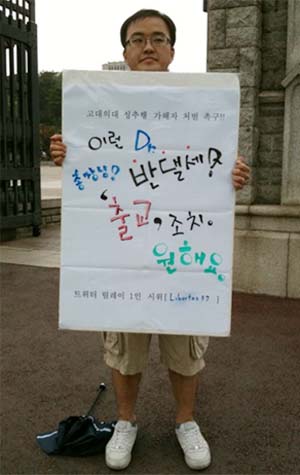 고대의대 성추행 가해자 처벌 촉구!!
이런 Dr.
총장님? 반댈세!
'출교, 조치.
원해요.
트위터 릴레이 1인 시위[ Libertas 17 ]